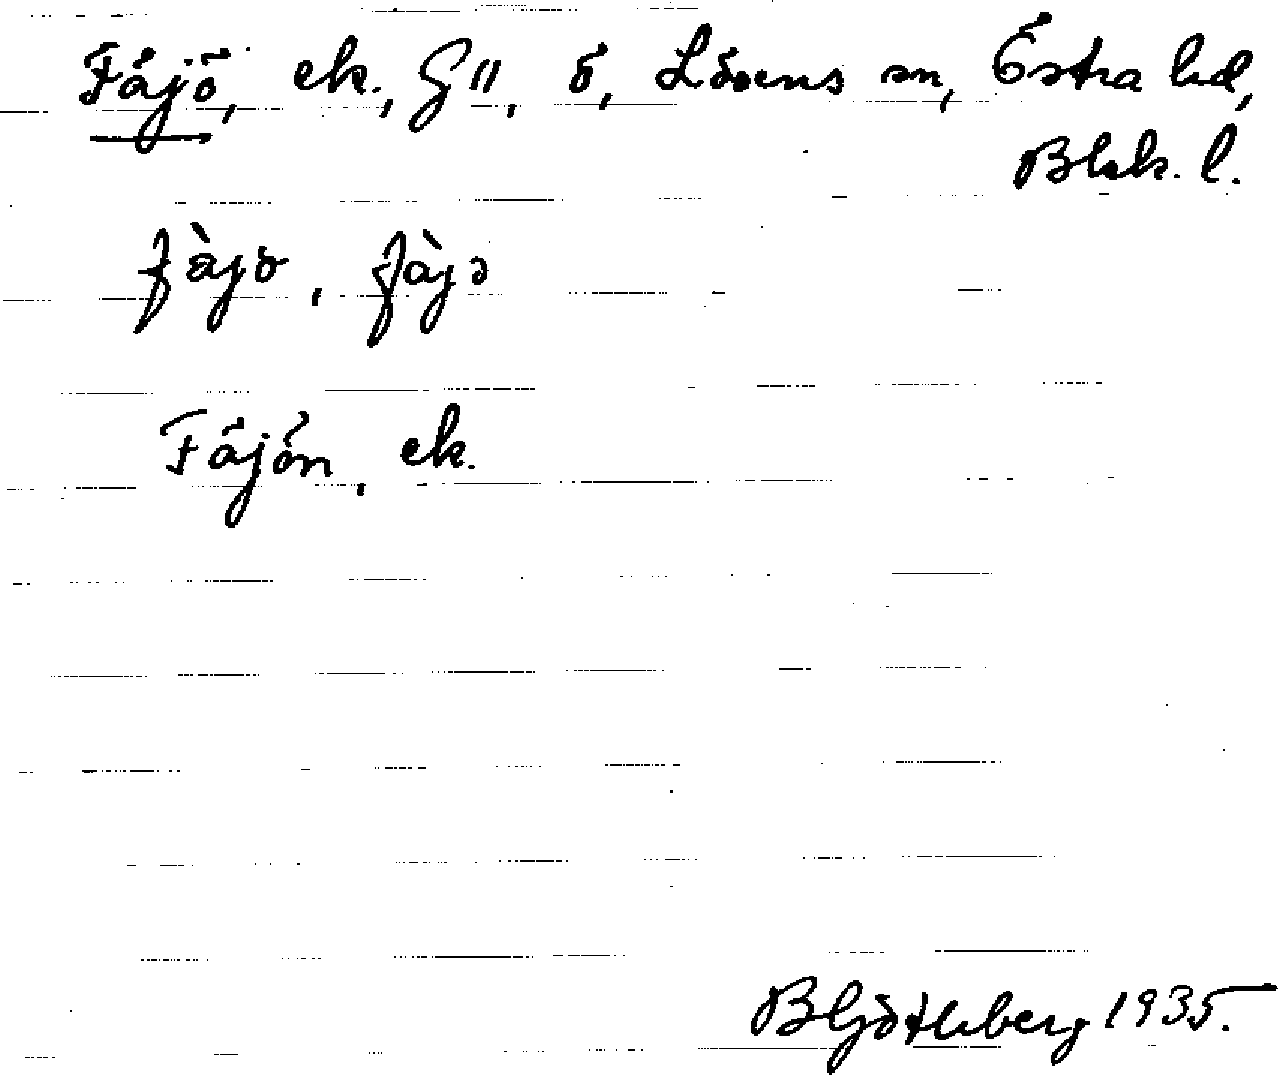 Fäjö, ek., G 11, ö, Lösens sn, Östra hd,
Blek. l.
fàjơ, fàjə
Fäjön, ek.
B Göthberg 1935.